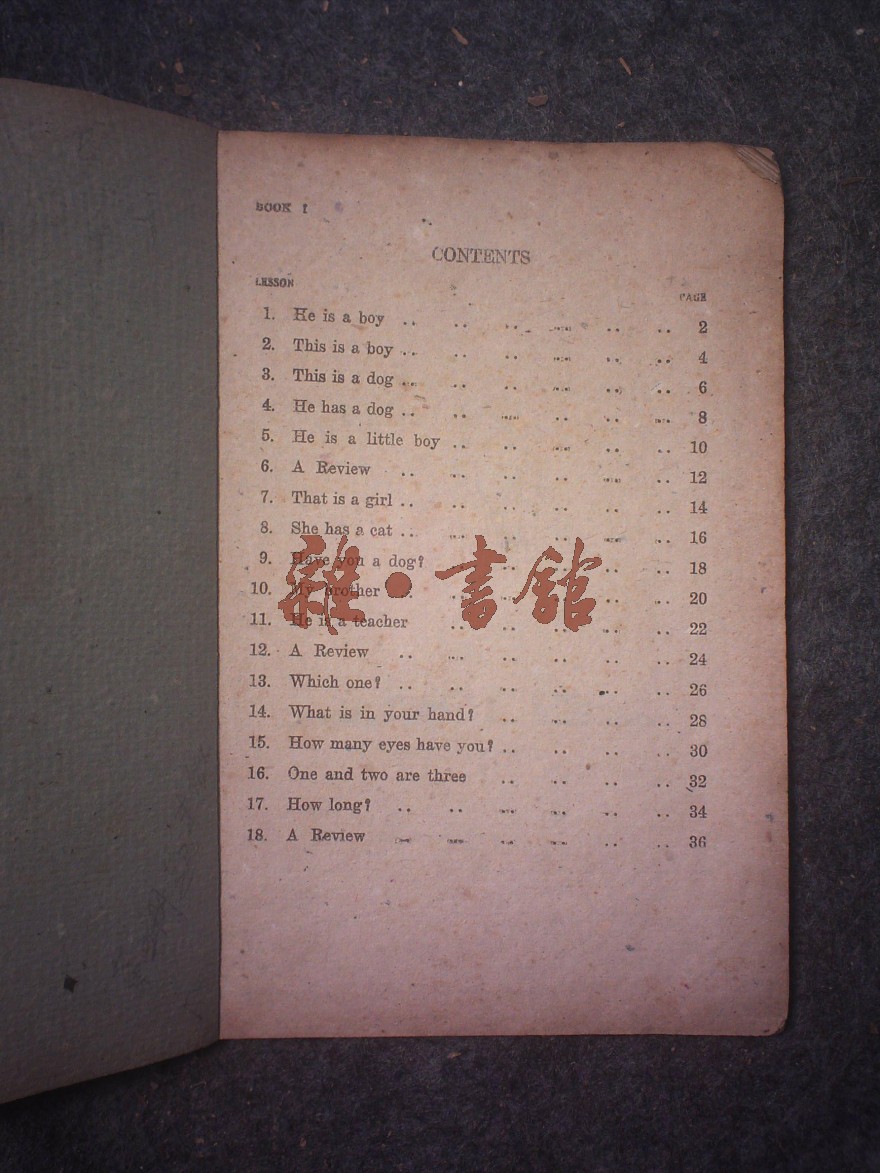 BOOK I
CONTENTS
LESSON PAGE
1. He is a boy .. .. .. .. .. .. 2
2. This is a boy .. .. .. .. .. .. 4
3. This is a dog .. .. .. .. .. .. 6
4. He has a dog .. .. .. .. .. .. 8
5. He is a little boy .. .. .. .. .. 10
6. A Review .. .. .. .. .. .. 12
7. That is a girl .. .. .. .. .. .. 14
8. She has a cat .. .. .. .. .. .. 16
9. Have you a dog? .. .. .. .. .. 18
10. My brother .. .. .. .. .. .. 20
11. He is a teacher .. .. .. .. .. 22
12. A Review .. .. .. .. .. .. 24
13. Which one? .. .. .. .. .. .. 26
14. What is in your hand? .. .. .. .. 28
15. How many eyes have you? .. .. .. .. 30
16. One and two are three .. .. .. .. 32
17. How long? .. .. .. .. .. .. 34
18. A Review .. .. .. .. .. .. 36
雜·書館